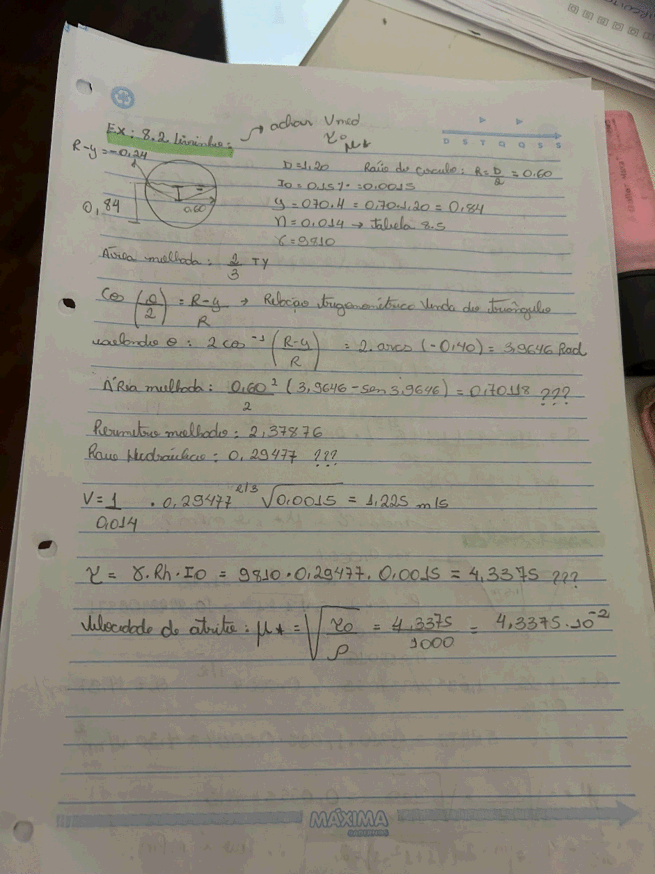 EX: 8.2 Livrinho: → achar Vmed
τo
μ*
D S T Q Q S S
R-y = -0,24
0,84
0.60
D=1,20 Raio do circulo: R=D/2 = 0.60
Io = 0.15% = 0.0015
y = 0.70.H = 0.70.1,20 = 0,84
n = 0,014 → tabela 8.5
γ = 9810
Área molhada: 2/3 Ty
Cos (θ/2) = R-y/R → Relação trigonométrica vinda do triângulo
isolando θ: 2 cos⁻¹ (R-y/R) = 2.arcos (-0,40) = 3,9646 Rad
ÁRia molhada: 0,60²/2 (3,9646 - sen 3,9646) = 0,70118 ???
Perimetro molhado: 2,37876
Raio Hidráulico: 0,29477 ???
V = 1/0,014 . 0,29477^2/3 √0,0015 = 1,225 m/s
τ = γ.Rh.Io = 9810.0,29477.0,0015 = 4,3375 ???
Velocidade de atrito: μ* = √τo/ρ = 4,3375/1000 = 4,3375.10⁻²
MÁXIMA